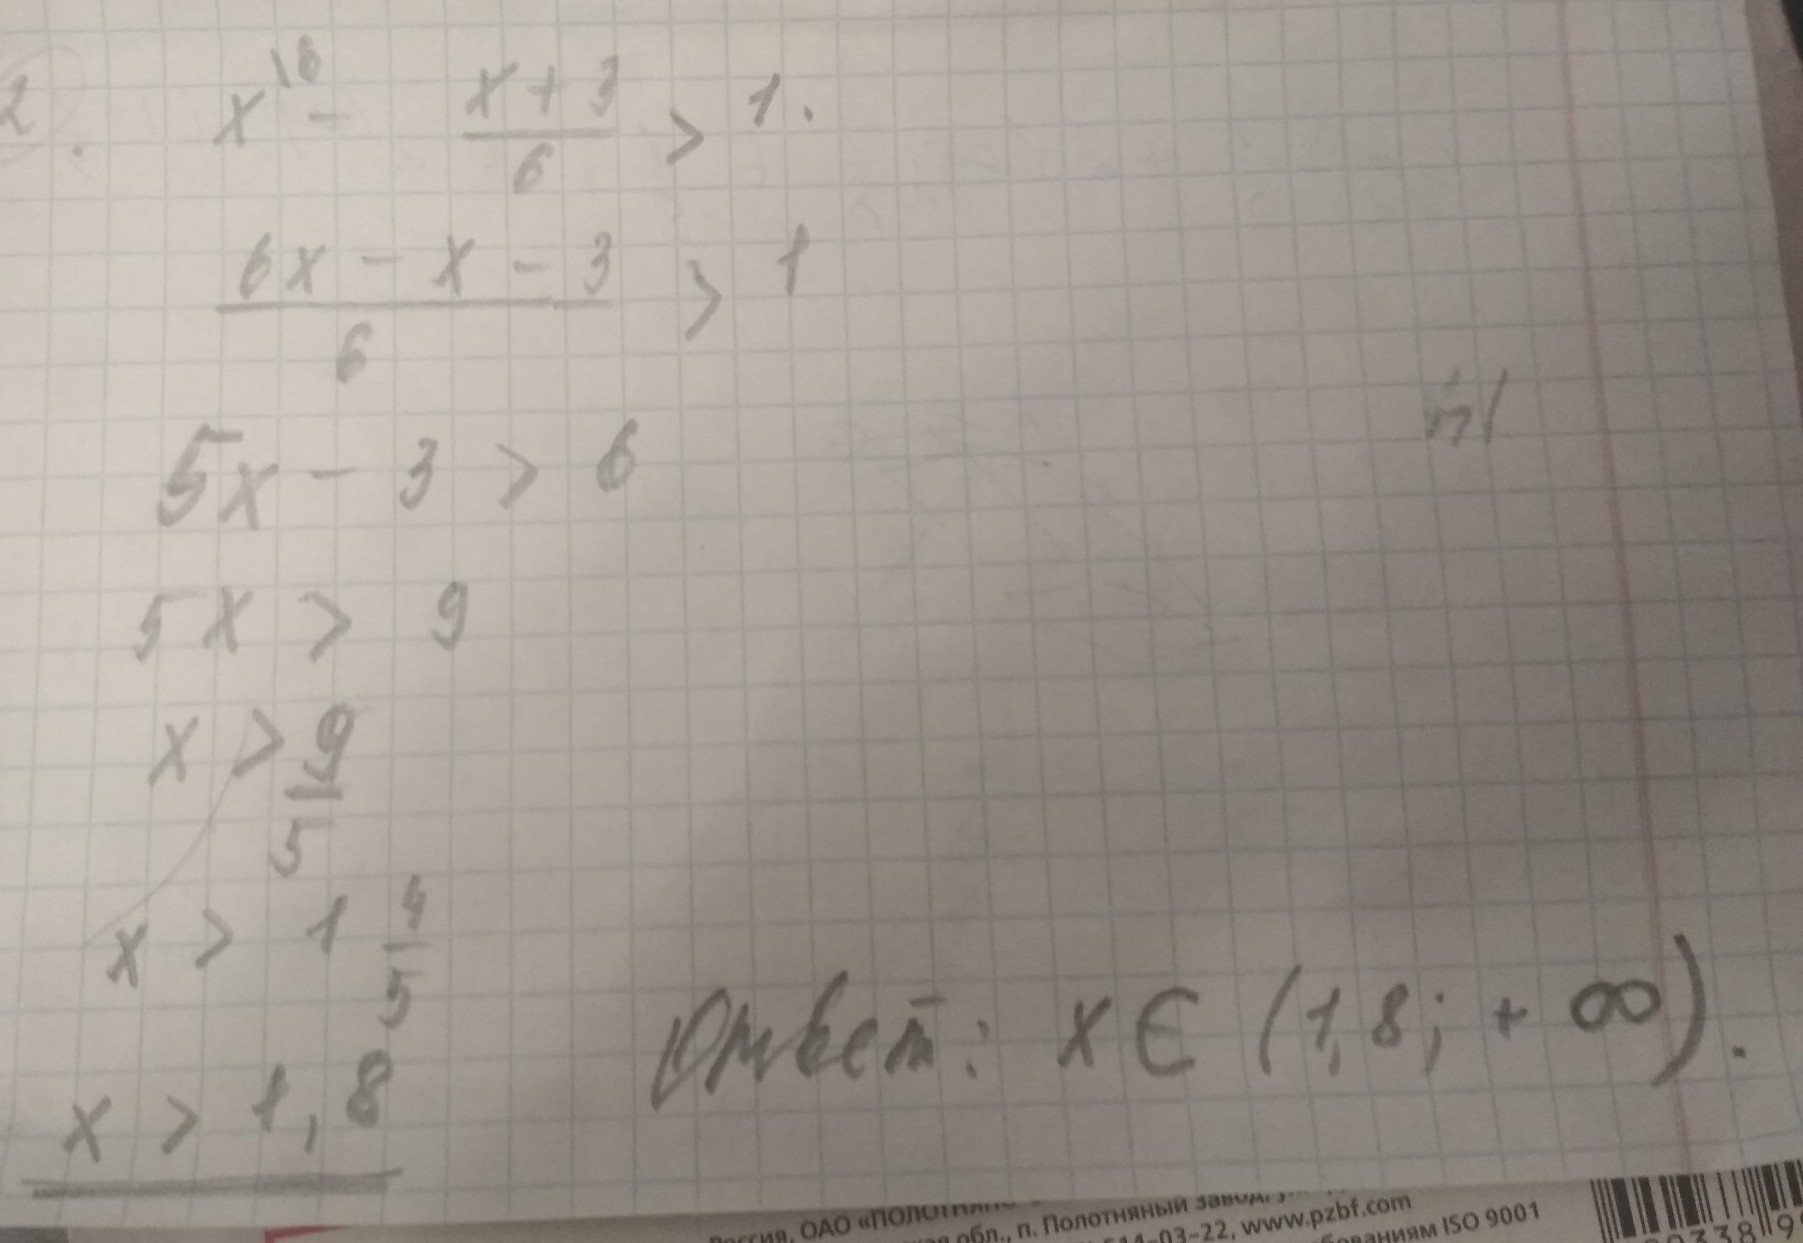 2. x^\6 - (x + 3)/6 > 1.
(6x - x - 3)/6 > 1
5x - 3 > 6
5x > 9
x > 9/5
x > 1 4/5
x > 1,8
Ответ: x ∈ (1,8; + ∞).
Россия, ОАО «ПОЛОТНЯНО
обл., п. Полотняный Завод,
-03-22, www.pzbf.com
ISO 9001